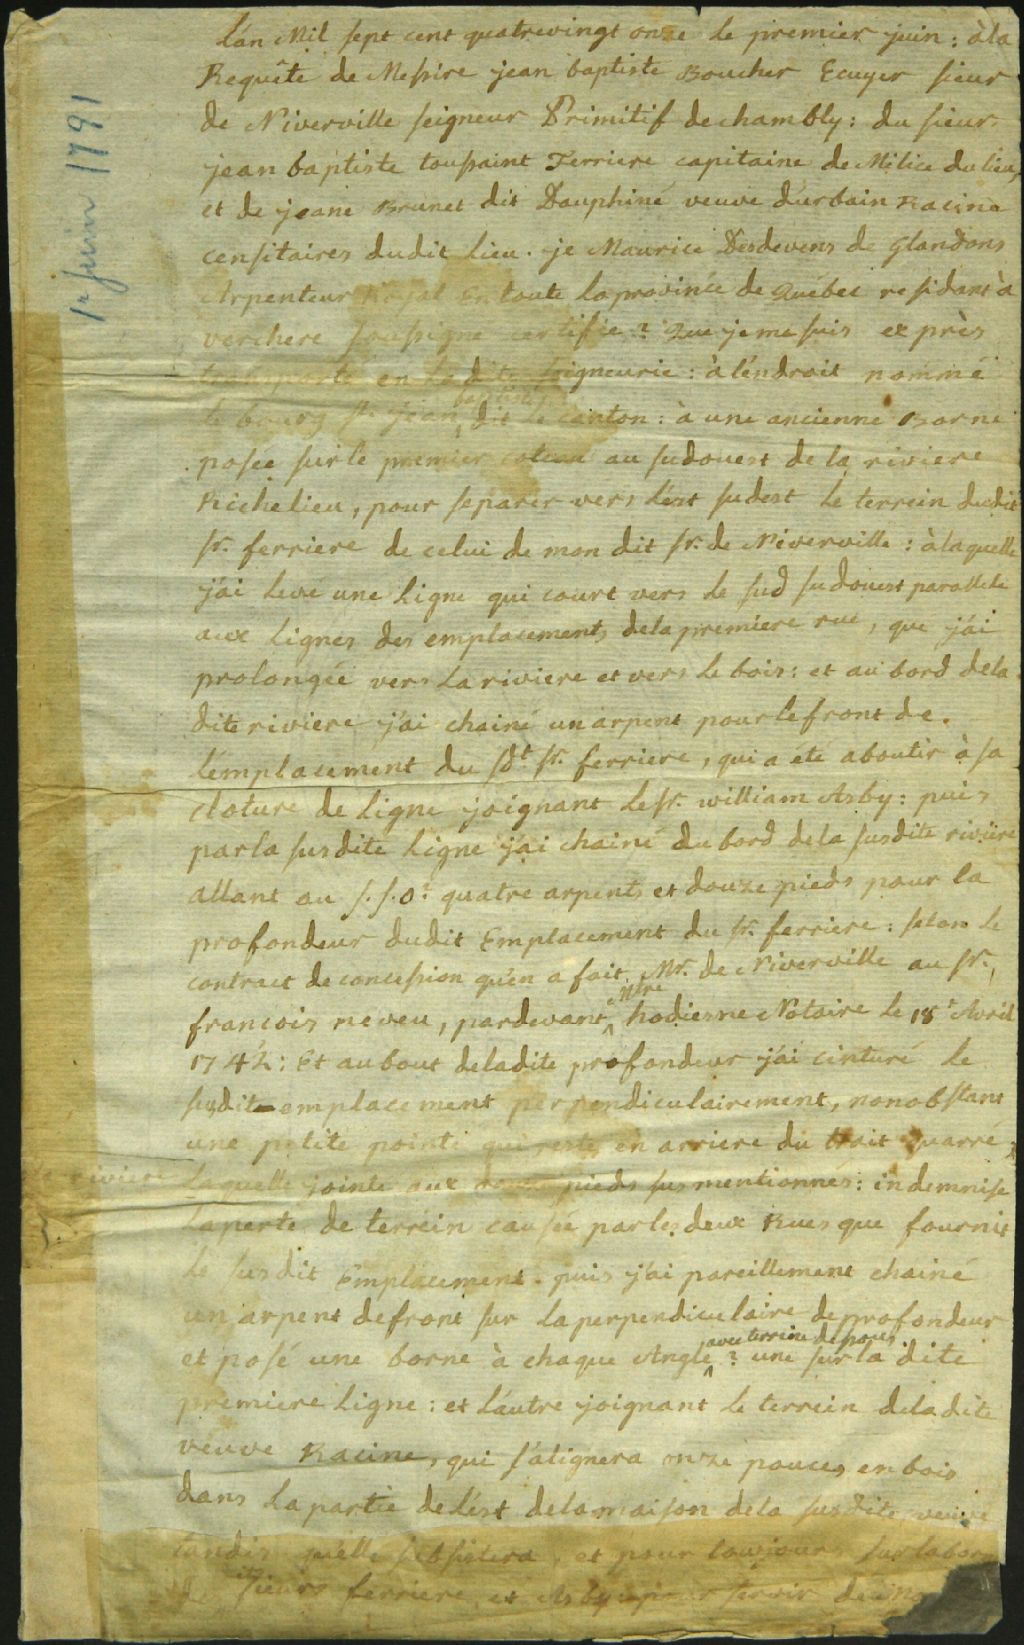 1r juin 1791
L'an Mil sept cent quatrevingt onze le premier juin : à la
Requête de Messire jean baptiste Boucher Ecuyer sieur
de Niverville seigneur Primitif de chambly : du sieur
jean baptiste toussaint Ferriere capitaine de Milice du lieu,
et de jeane Brunet dit Dauphiné veuve d'urbain Racine
censitaires dudit lieu. je Maurice Desdevens de Glandons
Arpenteur Royal En toute la province de Québec residant à
verchere soussigné certifie ? Que je me suis exprès
transporté en la dite seigneurie : à l'endroit nommé
le bourg St. jean baptiste dit le canton : à une ancienne Borne
posée sur le premier coteau au sudouest de la riviere
Richelieu, pour separer vers l'est sudest le terrein dudit
sr. ferriere de celui de mon dit sr. de Niverville : à laquelle
j'ai levé une ligne qui court vers le sud sudouest parallele
aux lignes des emplacements de la premiere rue, que j'ai
prolongée vers la riviere et vers le bois : et au bord de la
dite riviere j'ai chainé un arpent pour le front de
l'emplacement du sdt. sr. ferriere, qui a été aboutir à sa
cloture de ligne joignant le sr. william Asby : puis
par la susdite ligne j'ai chainé du bord de la susdite riviere
allant au s. s. o. quatre arpents et douze pieds pour la
profondeur dudit Emplacement du sr. ferriere : selon le
contract de concession qu'en a fait Mr. de Niverville au sr.
francois neveu, pardevant Mtre hodiesne Notaire le 18t Avril
: Et au bout de la dite profondeur j'ai cinturé le
susdit emplacement perpendiculairement, nonobstant
une petite pointe qui reste en arriere du trait quarré,
riviere
laquelle jointe aux pieds sus mentionnés : indemnise
la perte de terrein causée par les deux Rues que fournit
le susdit Emplacement. puis j'ai pareillement chainé
un arpent de front sur la perpendiculaire de profondeur
et posé une borne à chaque Angle ? une sur la dite
premiere ligne : et l'autre joignant le terrein de la dite
veuve Racine, qui s'alignera onze pouces en bois
dans la partie de l'est de la maison de la susdite veuve
tandis qu'elle subsistera, et pour toujours sur la
sieurs ferriere et Asby pour servir de